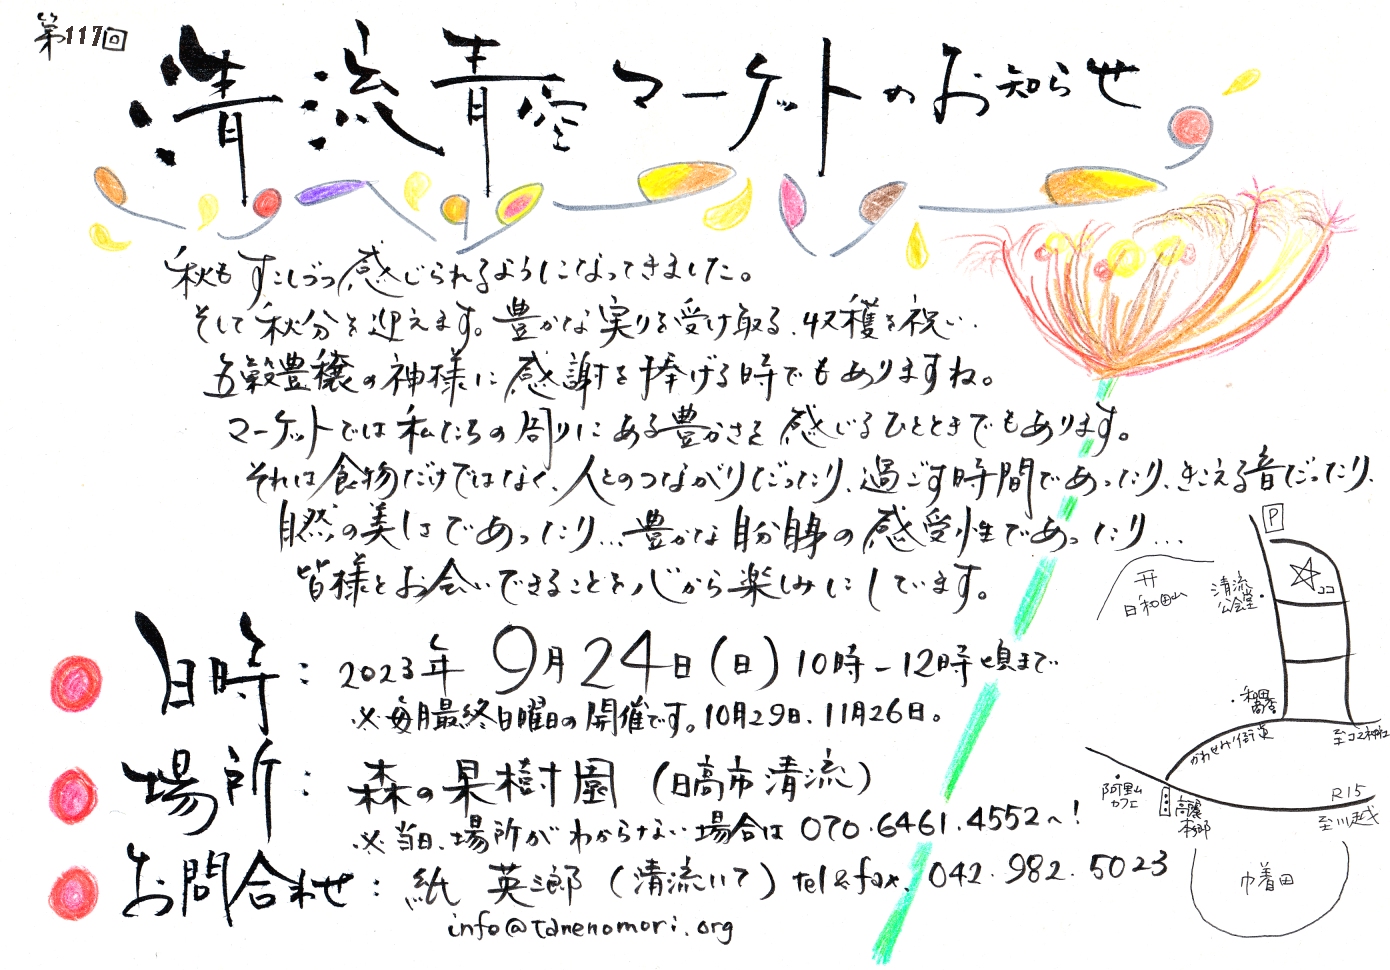 第117回
清流青空マーケットのお知らせ
秋もすこしづつ感じられるようになってきました。
そして秋分を迎えます。豊かな実りを受け取る、収穫を祝い、
五穀豊穣の神様に感謝を捧げる時でもありますね。
マーケットでは私たちの周りにある豊かさを感じるひとときでもあります。
それは食物だけではなく、人とのつながりだったり、過ごす時間であったり、きこえる音だったり、
自然の美しさであったり…豊かな自分自身の感受性であったり…
皆様とお会いできることを心から楽しみにしています。
日時：2023年 9月24日(日) 10時－12時頃まで
※毎月最終日曜日の開催です。10月29日、11月26日。
場所：森の果樹園（日高市清流）
※当日、場所がわからない場合は 070.6461.4552へ！
お問合わせ：紙 英三郎（清流にて）tel&fax. 042.982.5023
info@tanenomori.org
P
ココ
日和田山
清流
公会堂
かわせみ街道
至コマ神社
阿里山
カフェ
高麗
本郷
R15
至川越
巾着田